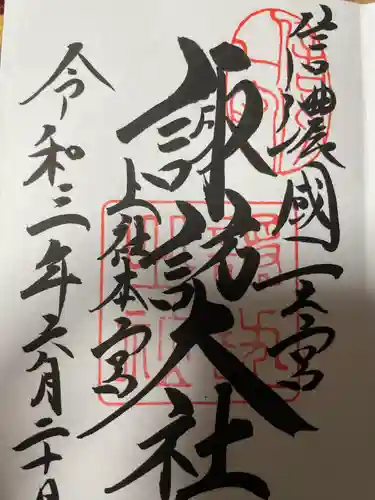 信濃國一之宮
諏訪大社
上社本宮
令和三年六月二十日